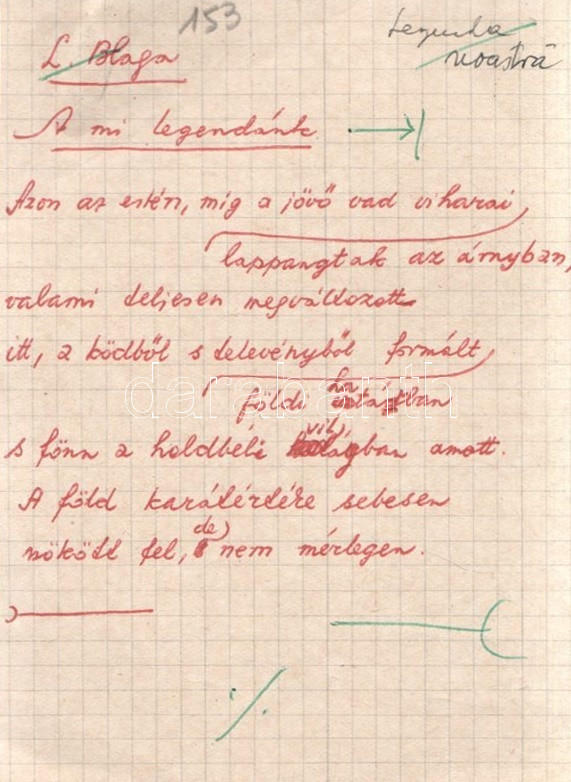 153
Legenda
noastră
L. Blaga
A mi legendánk
Azon az estén, míg a jövő vad viharai
lappangtak az árnyban,
valami teljesen megváltozott
itt, a ködből s televényből formált
földi határban
s fönn a holdbéli világban amott.
A föld karátértéke sebesen
szökött fel, de nem mérlegen.
darabanth